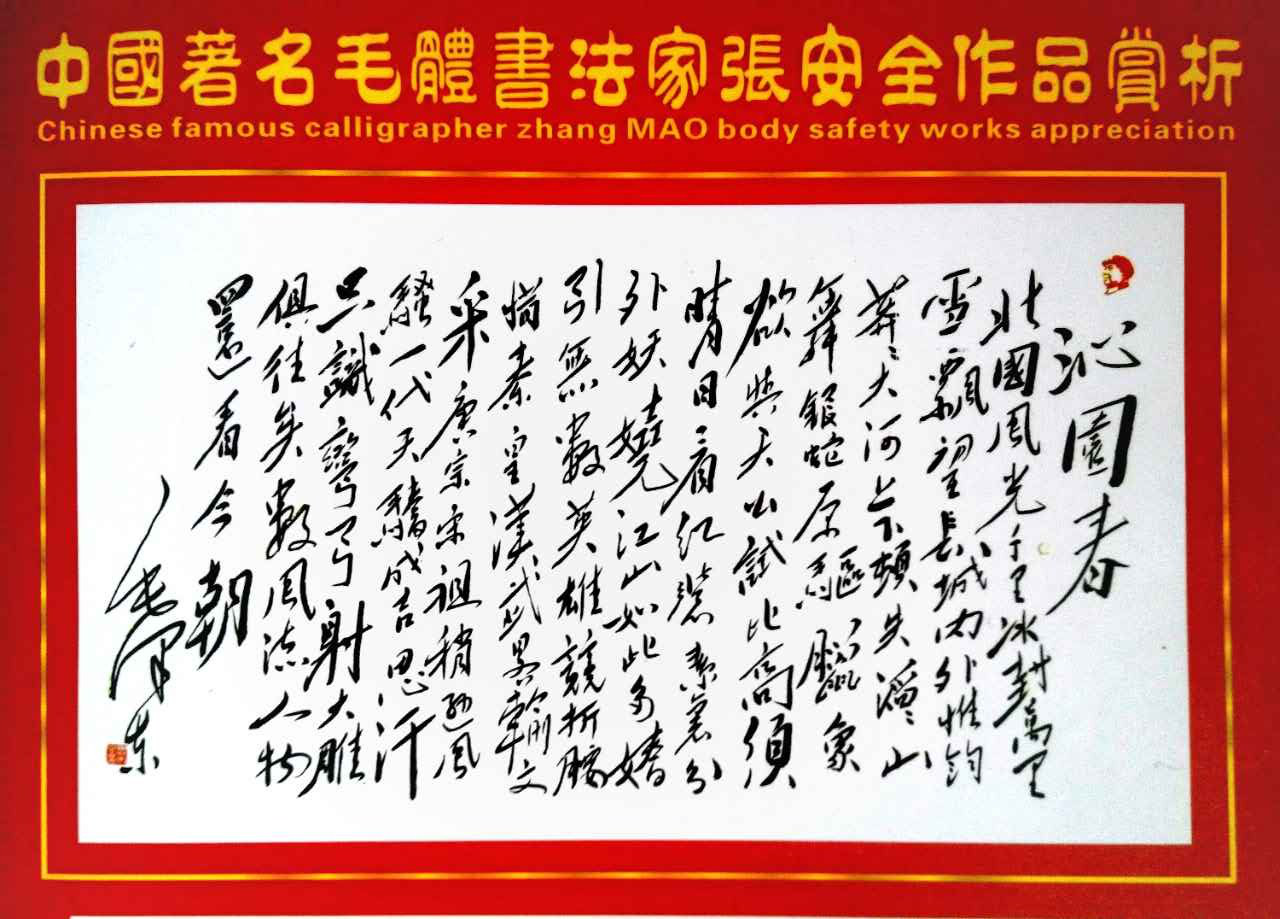 中國著名毛體書法家張安全作品賞析
Chinese famous calligrapher zhang MAO body safety works appreciation
沁園春
北國風光千里冰封萬里
雪飄望長城内外惟餘
莽〻大河上下頓失滔〻山
舞銀蛇原驅臘象
欲與天公試比高須
晴日看紅裝素裹分
外妖嬈江山如此多嬌
引無數英雄競折腰
惜秦皇漢武略輸文
采唐宗宋祖稍遜風
騷一代天驕成吉思汗
只識彎弓射大雕
俱往矣數風流人物
還看今朝
毛澤東